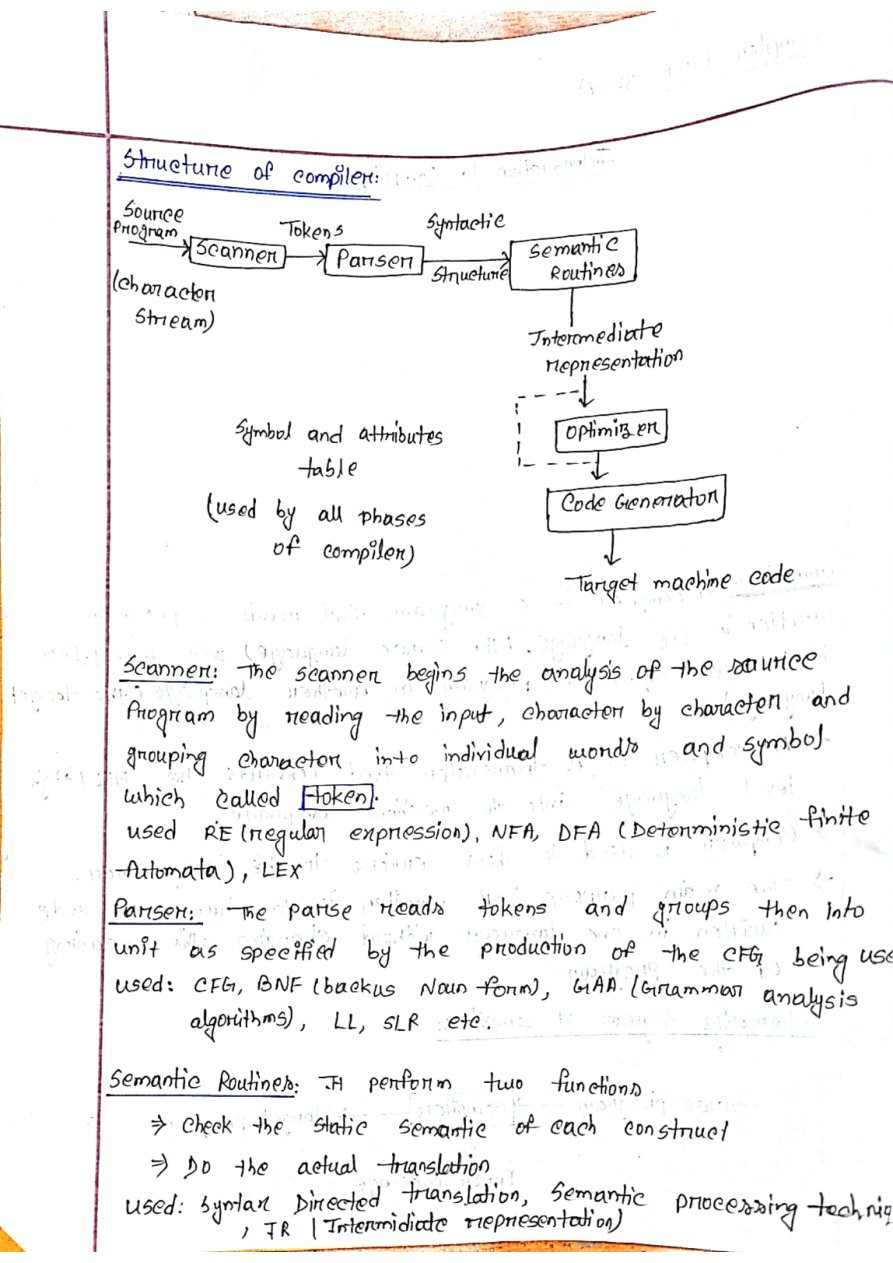 Structure of compiler:
Source
Program
Tokens
Syntactic
Scanner
Parser
Structure
Semantic
Routines
(character
Stream)
Intermediate
representation
Optimizer
Symbol and attributes
table
(used by all phases
of compiler)
Code Generator
Target machine code
Scanner: The scanner begins the analysis of the source
Program by reading the input, character by character and
grouping character into individual words and symbol
which called token.
used RE (regular expression), NFA, DFA (Deterministic finite
Automata), LEX
Parser: The parse reads tokens and groups then into
unit as specified by the production of the CFG being use
used: CFG, BNF (backus Naun form), GAA (Grammar analysis
algorithms), LL, SLR etc.
Semantic Routines: It perform two functions
⇒ Check the static semantic of each construct
⇒ Do the actual translation
used: Syntax Directed translation, Semantic processing techniq
, IR (Intermidiate representation)